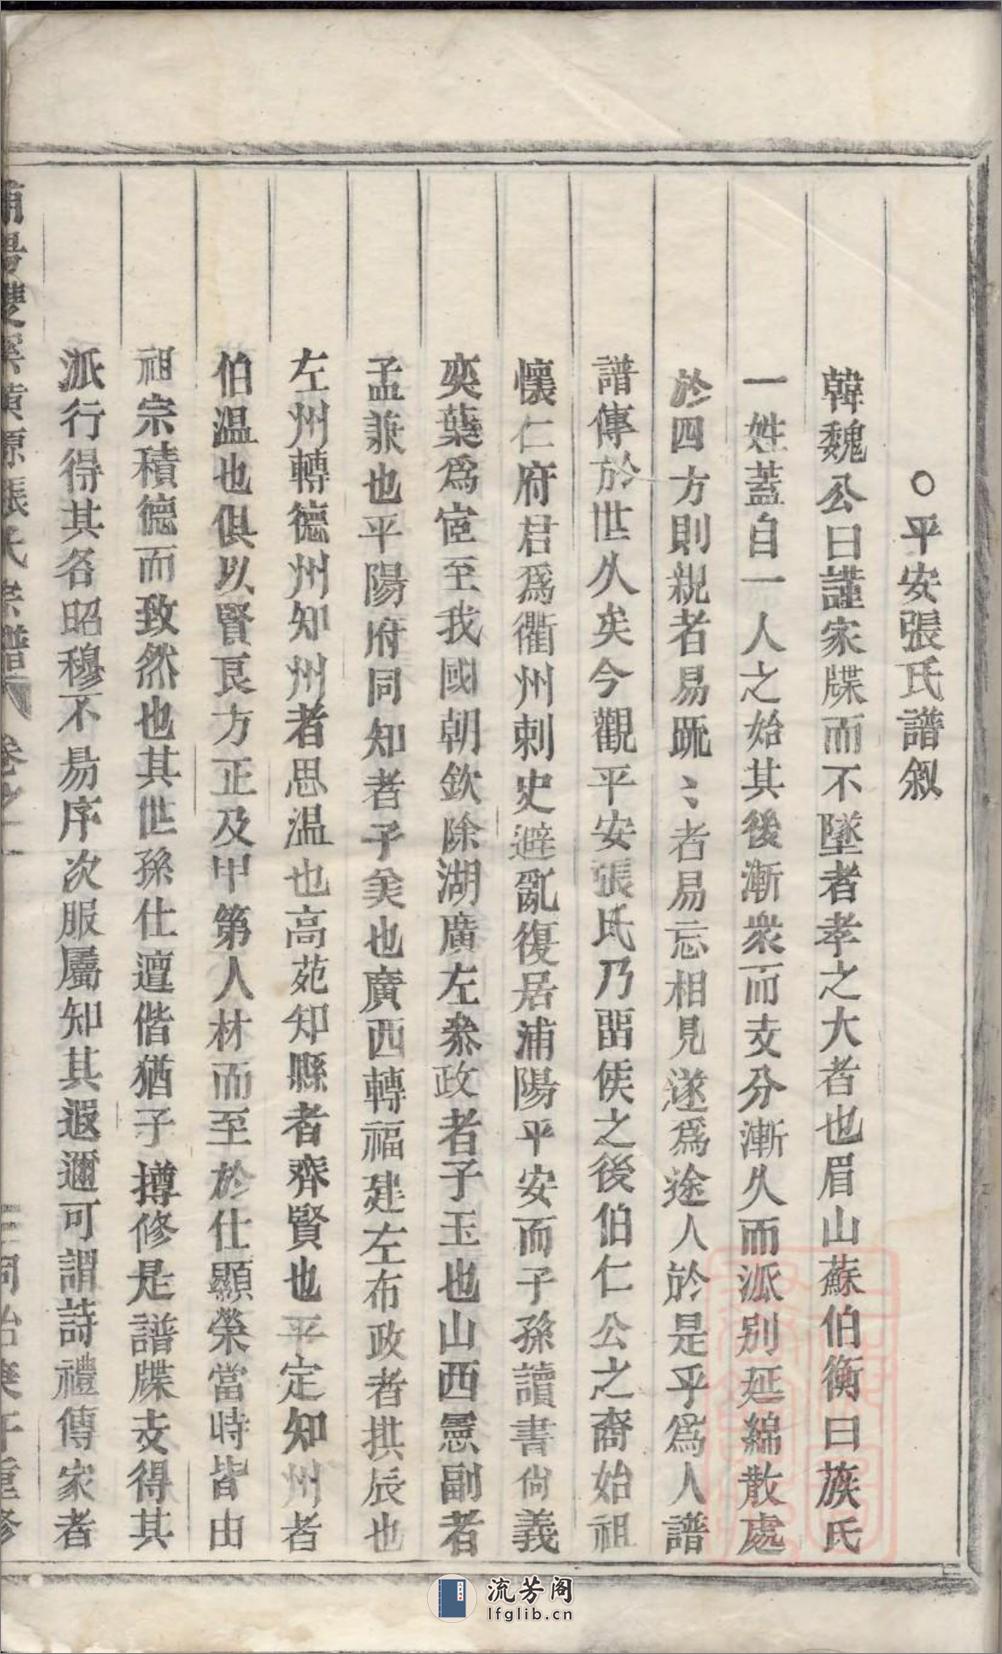 ○平安張氏譜叙
韓魏公曰謹家牒而不墜者孝之大者也眉山蘇伯衡曰族氏
一姓蓋自一人之始其後漸衆而支分漸久而派别延綿散處
於四方則親者易䟽〻者易忘相見遂爲途人於是乎爲人譜
譜傳於世久矣今觀平安張氏乃畱侯之後伯仁公之裔始祖
懷仁府君爲衢州刺史避亂復居浦陽平安而子孫讀書尙義
奕葉爲宦至我國朝欽除湖廣左叅政者子玉也山西憲副者
孟兼也平陽府同知者子美也廣西轉福建左布政者拱辰也
左州轉德州知州者思溫也高苑知縣者齊賢也平定知州者
伯温也俱以賢良方正及甲第人材而至於仕顯榮當時皆由
祖宗積德而致然也其世孫仕澶偕猶子摶修是譜牒支得其
派行得其各昭穆不易序次服屬知其遐邇可謂詩禮傳家者
浦陽雙溪黃源張氏宗譜 卷之一 同治庚午重修
流芳阁
lfglib.cn